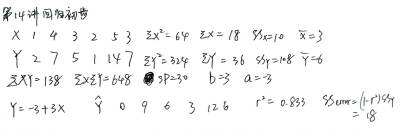 第14讲 回归初步
X 1 4 3 2 5 3 ΣX²=64 ΣX=18 SSx=10 x̄=3
Y 2 7 5 1 14 7 ΣY²=324 ΣY=36 SSy=108 Ȳ=6
ΣXY=138 ΣXΣY=648 SP=30 b=3 a=-3
Y=-3+3X Ŷ 0 9 6 3 12 6 r²=0.833 SSerror=(1-r²)SSy
=18